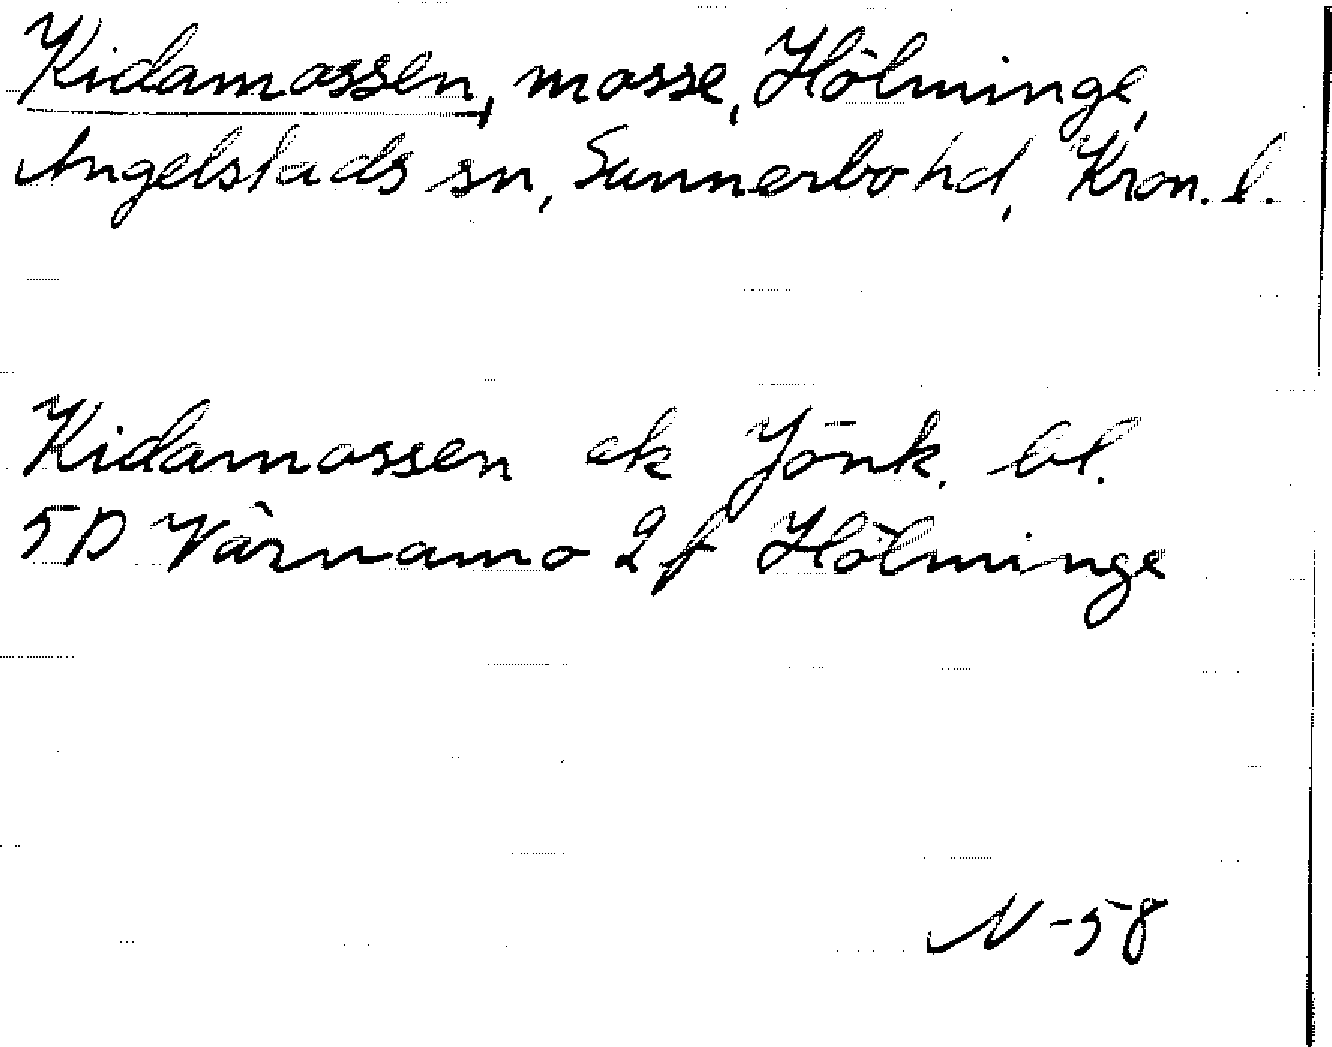 Kidamossen, mosse, Hölminge,
Angelstads sn, Sunnerbo hd, Kron. l.
Kidamossen ek Jönk. bl.
5D Värnamo 2f Hölminge
N-58